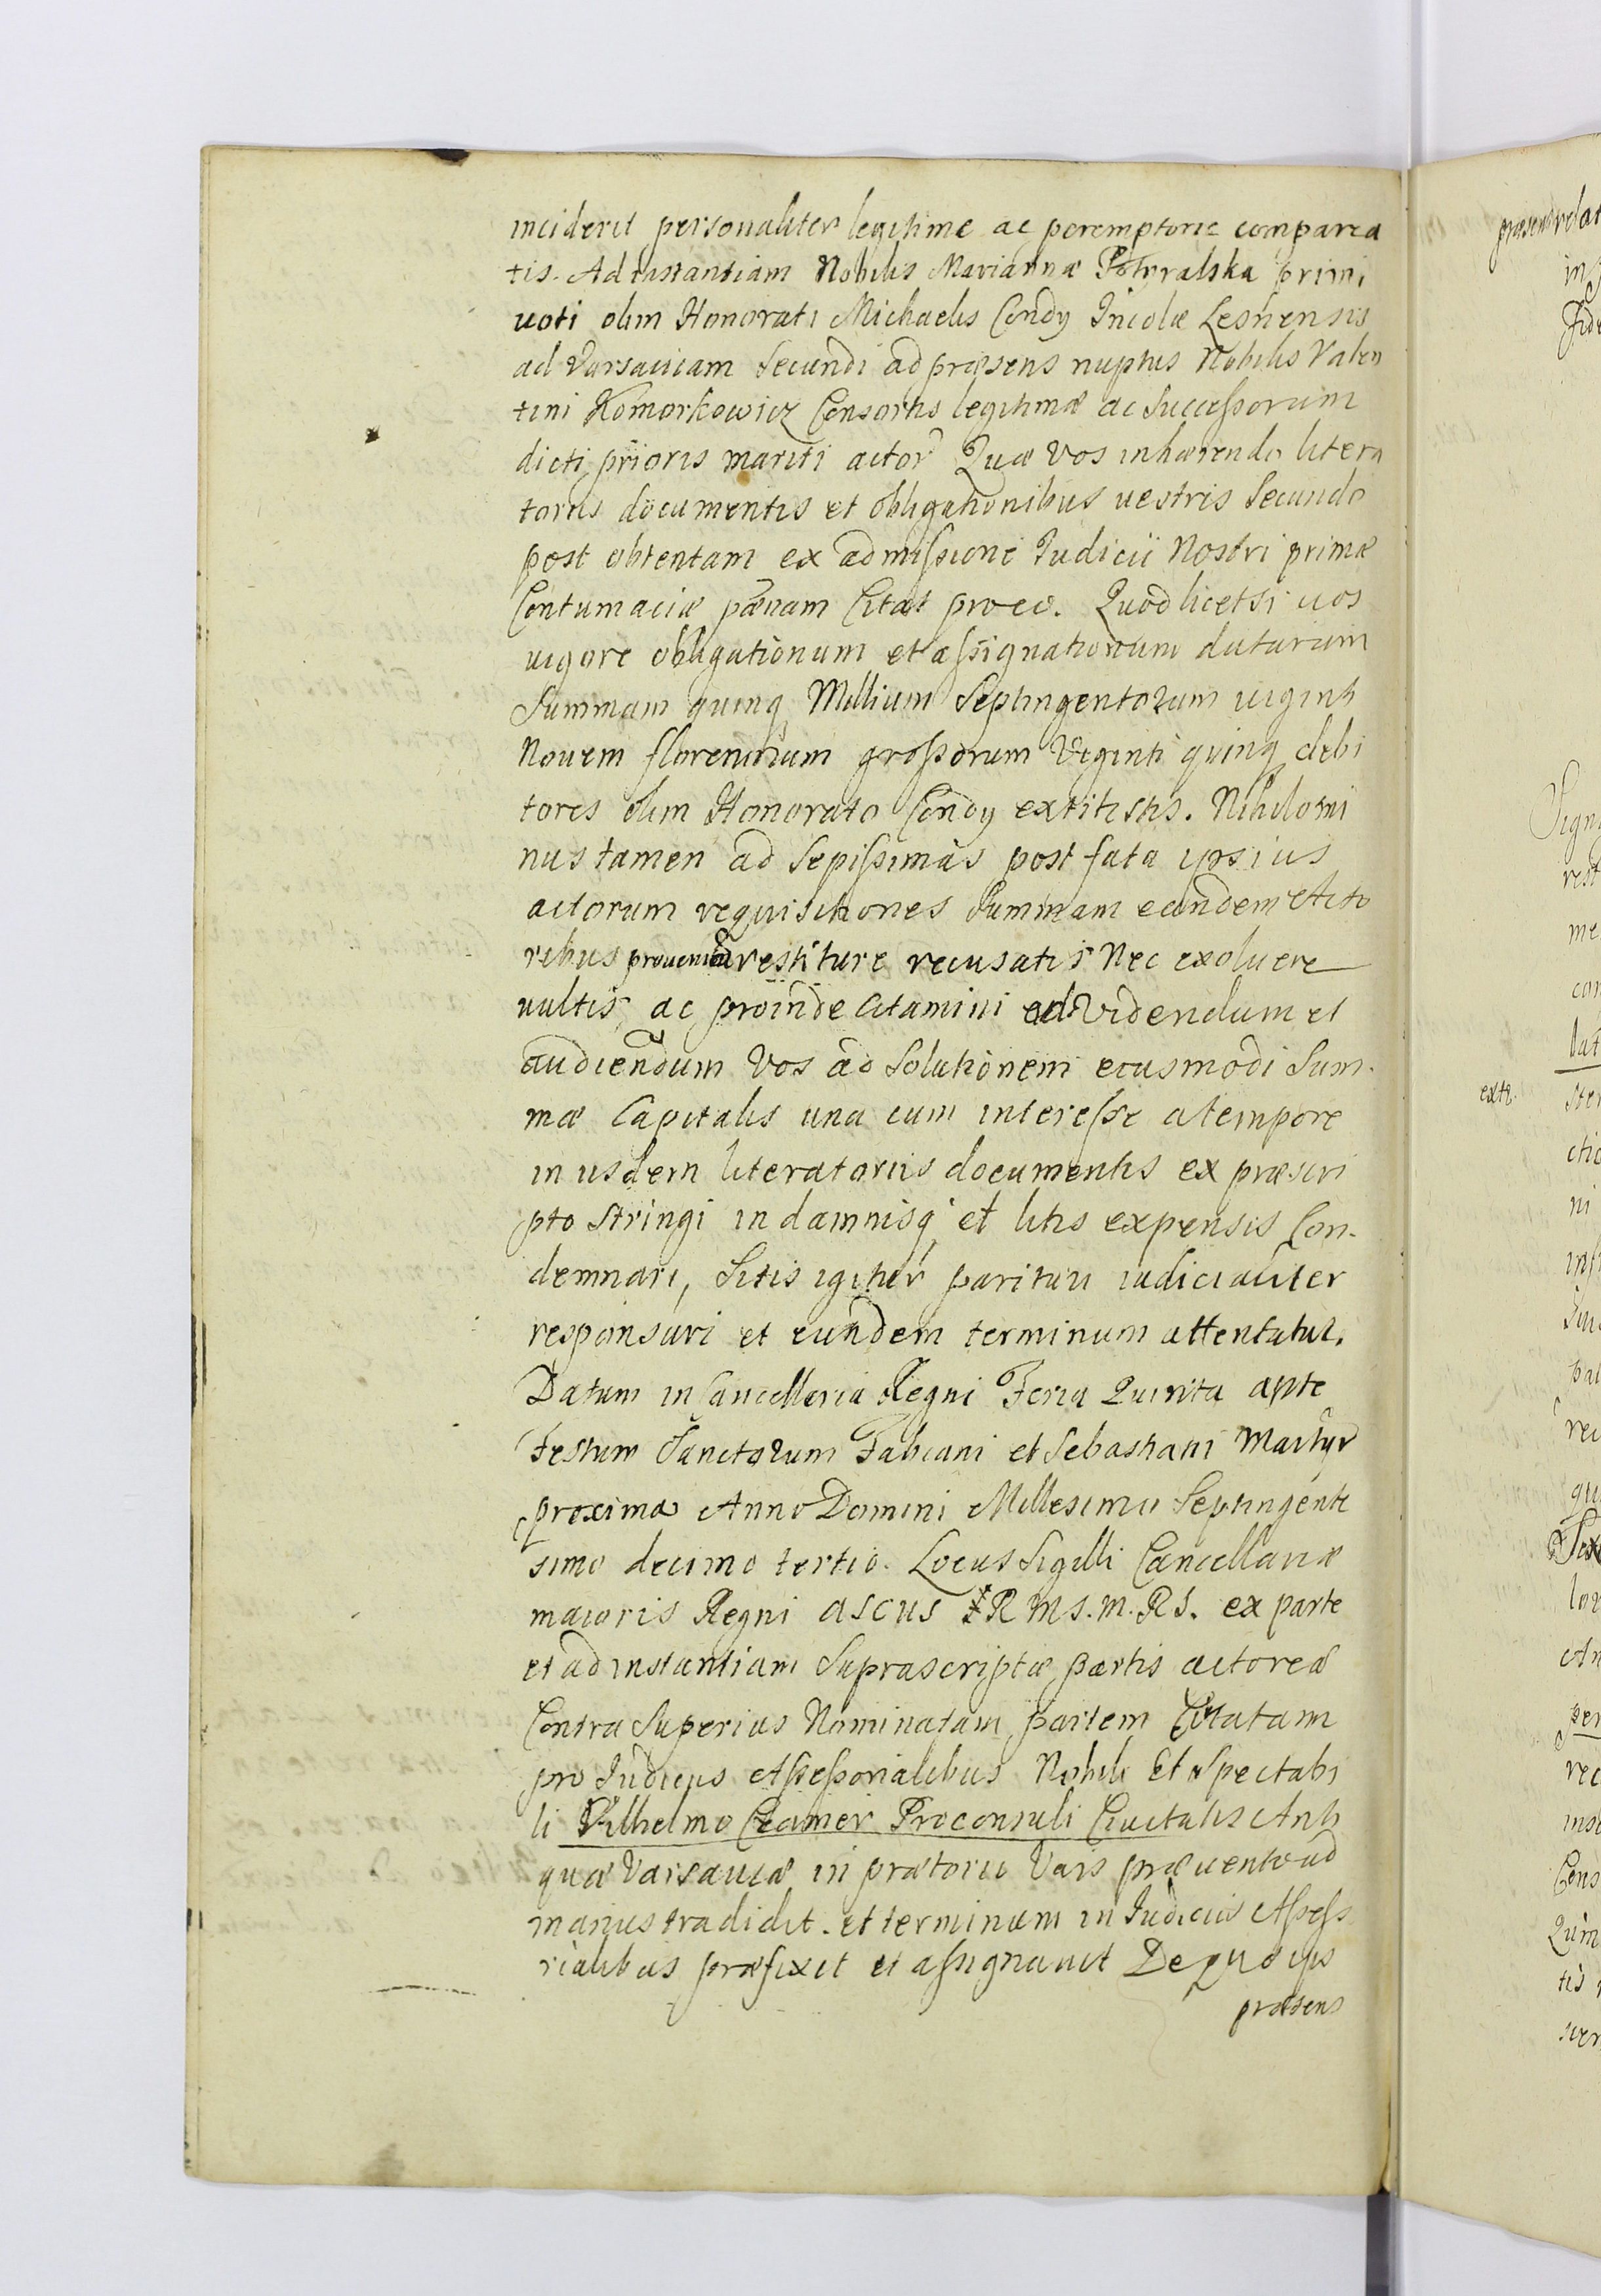 inciderit personaliter legitime ac peremptorie comparea
tis. Ad instantiam Nobilis Mariannæ Potyralska primi
uoti olim Honorati Michaelis Condy Incolæ Lesnensis
ad Varsauiam Secundi ad præsens nuptus Nobilis Valen
tini Komorkowicz Consortis legitimæ ac Successorum
dicti prioris mariti actor Quæ Vos inhærendo litera
torijs documentis et obligationibus uestris Secundo
post obtentam ex admissione Iudicii Nostri primæ
Contumaciæ pænam Citat proeo. Quod licet si uos
uigore obligationum et assignationum datarum
Summam quinq Millium Septingentorum uiginti
Nouem florenorum grossorum Viginti quinq debi
tores olim Honorato Condy extitistis. Nihilomi
nus tamen ad Sepissimas post fata ipsius
actorum requisitiones Summam eandem Acto
ribus restituere recusatis Nec exoluere
uultis, ac proinde Citamini ad Videndum et
audiendum Vos ad Solutionem eiusmodi Sum-
mæ Capitalis una cum interesse a tempore
in iisdem literatoriis documentis ex præscri
pto Stringi in damnisq et litis expensis Con-
demnari, Sitis igitur parituri iudicialiter
responsuri et eundem terminum attentatur.
Datum in Cancellaria Regni Feria Quinta ante
Festum Sanctorum Fabiani et Sebastiani Martyr
proxima Anno Domini Millesimo Septingente
simo decimo tertio. Locus Sigilli Cancellariæ
maioris Regni ascus R M S. M. R S. ex parte
et ad instantiam Suprascriptæ partis actoreæ
Contra Superius Nominatam partem Citatam
pro Iudicijs Assessorialibus Nobili Et Spectabi
li Vilhelmo Cramer Proconsuli Ciuitatis Anti
quæ Varsauiæ in prætorio Vars præuento ad
manus tradidit. et terminum in Iudicijs Assesso
rialibus præfixit et assignauit De quo ips
præsens